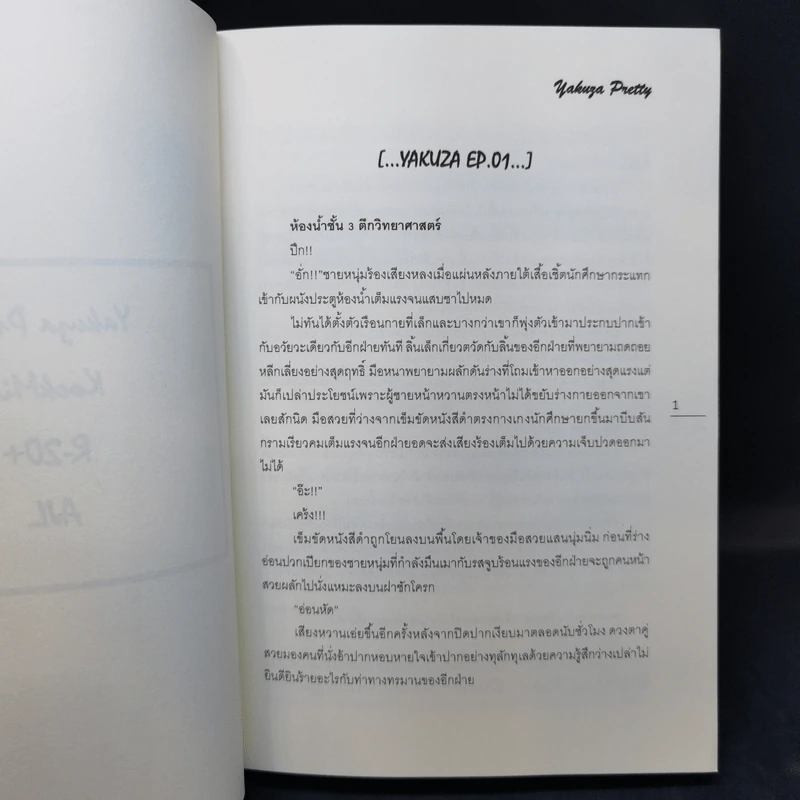 Yakuza Pretty
[...YAKUZA EP.01...]
ห้องน้ำชั้น 3 ตึกวิทยาศาสตร์
ปึก!!
"อั่ก!!"ชายหนุ่มร้องเสียงหลงเมื่อแผ่นหลังภายใต้เสื้อเชิ้ตนักศึกษากระแทก
เข้ากับผนังประตูห้องน้ำเต็มแรงจนแสบชาไปหมด
ไม่ทันได้ตั้งตัวเรือนกายที่เล็กและบางกว่าเขาก็พุ่งตัวเข้ามาประกบปากเข้า
กับอวัยวะเดียวกับอีกฝ่ายทันที ลิ้นเล็กเกี่ยวตวัดกับลิ้นของอีกฝ่ายที่พยายามถดถอย
หลีกเลี่ยงอย่างสุดฤทธิ์ มือหนาพยายามผลักดันร่างที่โถมเข้าหาออกอย่างสุดแรงแต่
มันก็เปล่าประโยชน์เพราะผู้ชายหน้าหวานตรงหน้าไม่ได้ขยับร่างกายออกจากเขา
เลยสักนิด มือสวยที่ว่างจากเข็มขัดหนังสีดำตรงกางเกงนักศึกษายกขึ้นมาบีบสัน
กรามเรียวคมเต็มแรงจนอีกฝ่ายอดจะส่งเสียงร้องเต็มไปด้วยความเจ็บปวดออกมา
ไม่ได้
1
"อ๊ะ!!"
เคร้ง!!!
เข็มขัดหนังสีดำถูกโยนลงบนพื้นโดยเจ้าของมือสวยแสนนุ่มนิ่ม ก่อนที่ร่าง
อ่อนปวกเปียกของชายหนุ่มที่กำลังมึนเมากับรสจูบร้อนแรงของอีกฝ่ายจะถูกคนหน้า
สวยผลักไปนั่งแหมะลงบนฝาชักโครก
"อ่อนหัด"
เสียงหวานเอ่ยขึ้นอีกครั้งหลังจากปิดปากเงียบมาตลอดนับชั่วโมง ดวงตาคู่
สวยมองคนที่นั่งอ้าปากหอบหายใจเข้าปากอย่างทุลักทุเลด้วยความรู้สึกว่างเปล่าไม่
ยินดียินร้ายอะไรกับท่าทางทรมานของอีกฝ่าย